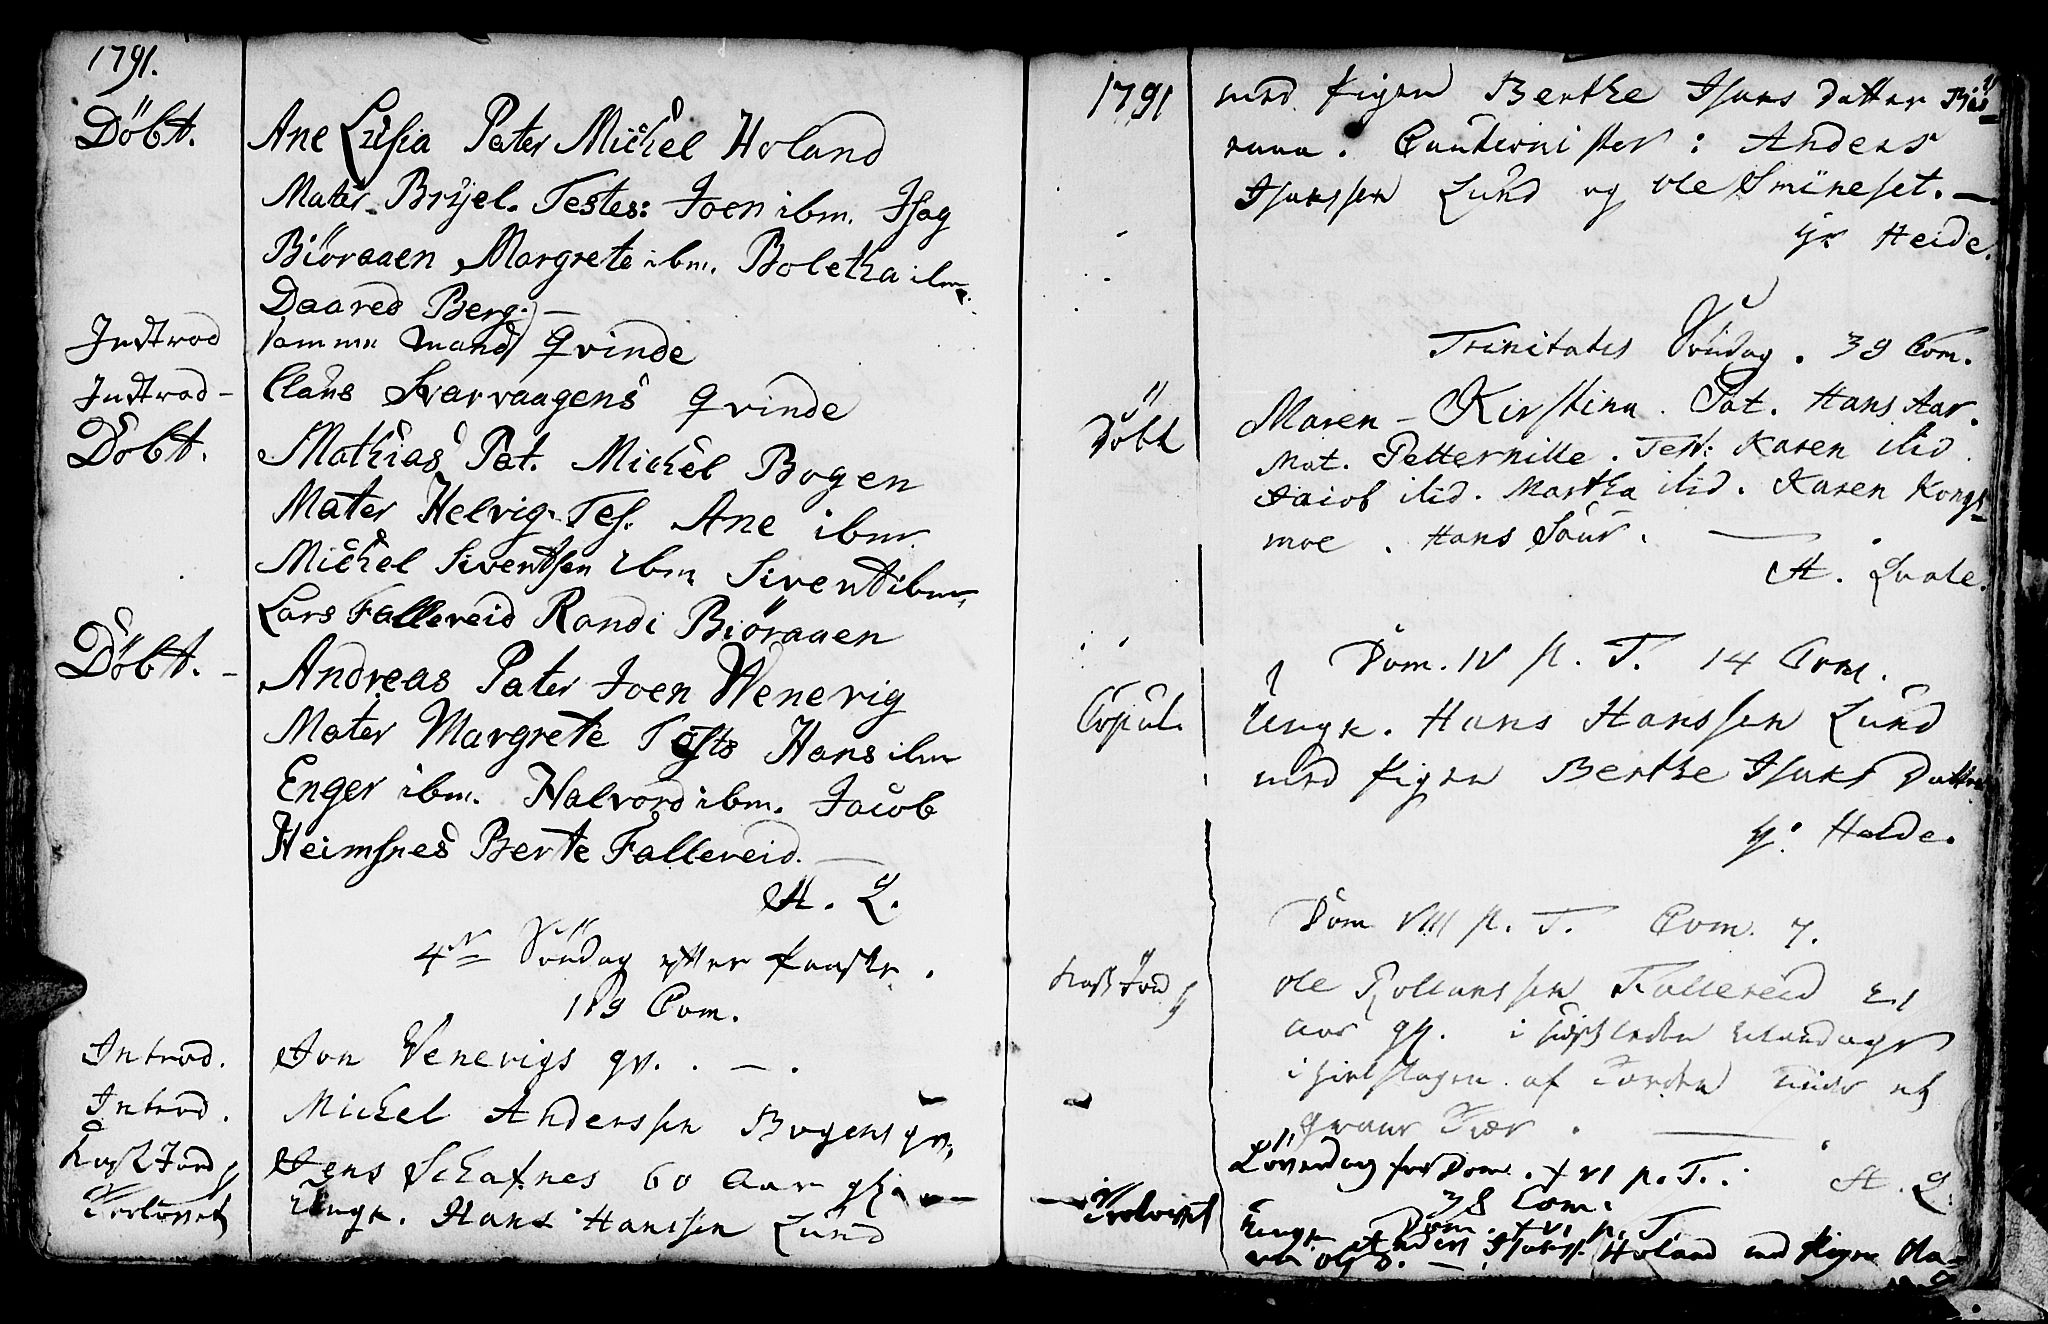 1791.
Döbt. Ane Lusia Pater Michel Holand
Mater Brijel. Testes: Joen ibm. Isag
Biöraaen Margrete ibm. Boletha ibm.
Daared Berg. —
Indtrod samme Mands Qvinde
Indtrod - Claus Svarvaagens Qvinde
Döbt. Mathias Pat. Michel Bogen
Mater Helvig. Tes. Ane ibm
Michel Siventsen ibm Sivendt ibm,
Lars Fallereid Randi Biöraaen
Döbt. - Andreas Pater Joen Wenevig
Mater Margrete Tests Hans ibm
Enger ibm. Halvord ibm. Jacob
Heimsnes Berte Fallereid. —
A. L.
4de Söndag efter Paaske.
119 Com.
Introd. Jon Venevigs qv. . — .
Introd. Michel Anderssen Bogens qv.
Kast Jord p Jens Schafnes 60 Aar gl. —
Trolovet Ungk. Hans Hanssen Lund
1791 med Pigen Berthe Isaks Datter Biö=
raaa. Cautionister: Anders
Isakssen Lund og Ole Smineset. —
Heide.
Trinitatis Söndag. 39 Com.
Döbt Maren - Kirstina. Pat. Hans Aar.
Mat. Petternille. Test: Karen ibid.
Jacob ibid. Martha ibid. Karen Kongs=
moe. Hans Saur. —
A. Qvale.
Dom. IV p. T. 14 Com.
Copul. Ungk. Hans Hanssen Lund
med Pigen Berthe Isaks Datter
Heide.
Dom VIII p. T. Com. 7.
Kast Jord p Ole Rollanssen Fallereid 21
Aar gl. i
i af Torden under et
Træer. —
A. L.
Löverdag for Dom. XVI p. T.
38 Com.
Dom. XVI p. T.
Trolovet Ungk. Anders Isaks. Holand med Pigen Ma=
ren Ols D. —